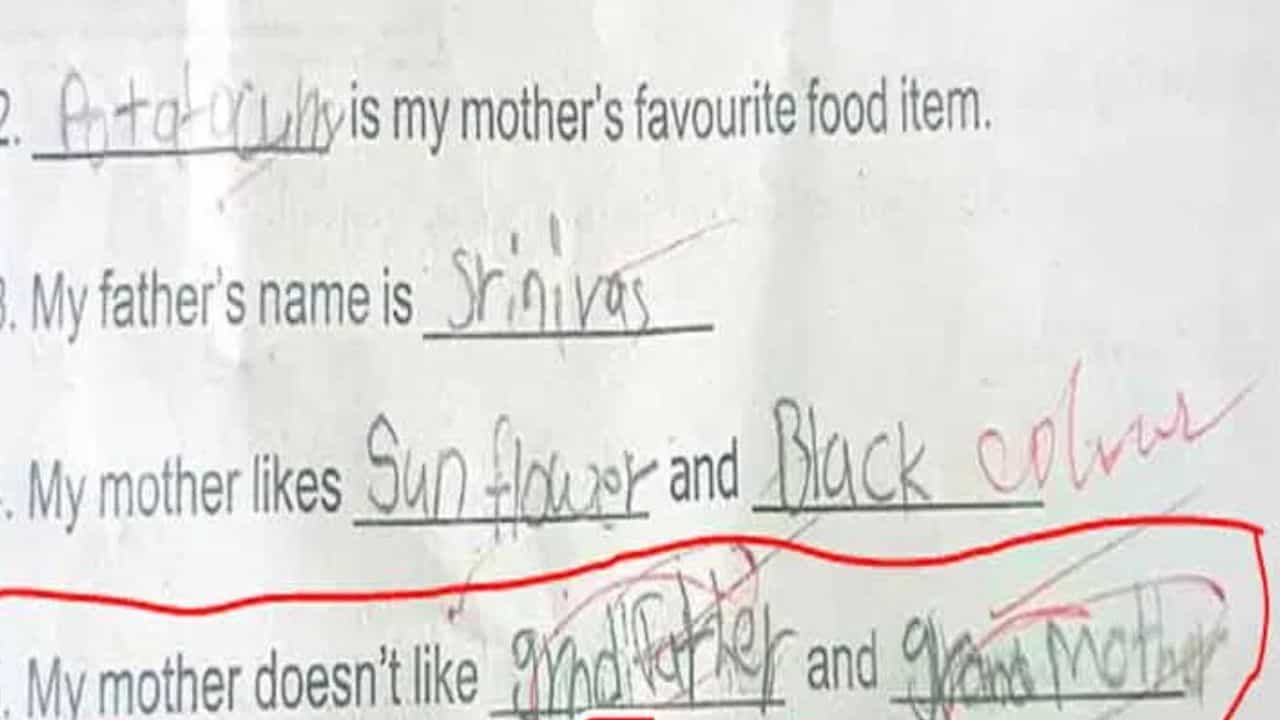 2. is my mother's favourite food item.
3. My father's name is Srinivas
. My mother likes Sun flower and Black colour
. My mother doesn't like grndfather and grand Mother